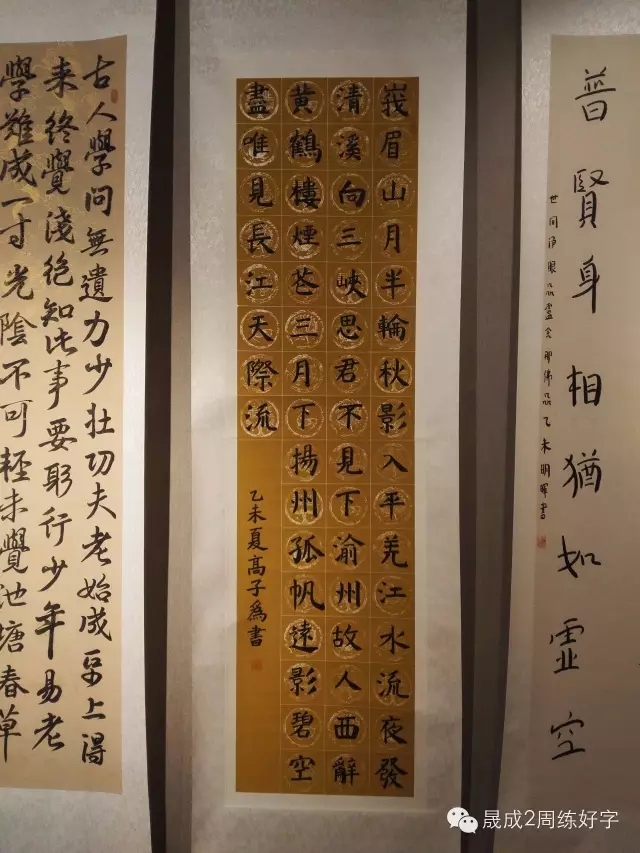 普賢身相猶如虛空
世间淨眼品盧舍那佛品乙未明暉書
峩眉山月半輪秋影入平羌江水流夜發
清溪向三峽思君不見下渝州故人西辭
黄鶴樓煙花三月下揚州孤帆遠影碧空
盡唯見長江天際流
乙未夏髙子爲書
古人學問無遺力少壯功夫老始成帋上得
来終覺淺絕知此事要躬行少年易老
學難成一寸光陰不可輕未覺池塘春草
晟成2周练好字